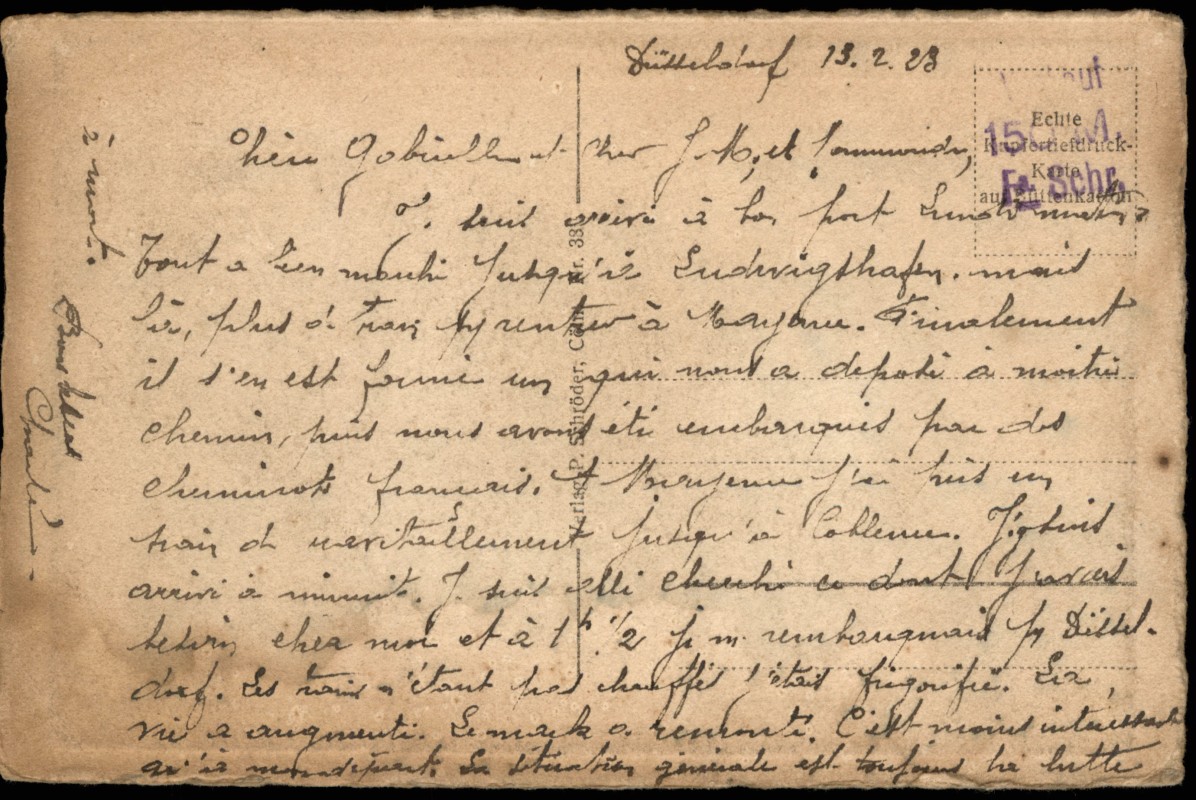 Düsseldorf 13. 2. 23
Chère Gabrielle et cher J. M, et
J. suis arrivé à bon port Lundi matin
Tout a bien marché jusqu'à Ludwigshafen. mais
là, plus d train pr rentrer à Mayence. Finalement
il s'en est formé un qui nous a déposé à moitié
chemin, puis nous avons été embarqués par des
cheminots français. A Mayence j'ai pris un
train d ravitaillement jusqu'à Coblence. J'y suis
arrivé à minuit. J. suis allé cherché ce dont j'avais
besoin chez moi et à 1h 1/2 je m rembarquais pr Düssel-
dorf. Les trains n'étant pas chauffés j'étais frigorifié. La
vie a augmenté. Le mark a remonté. C'est moins intéressant
qu'à mon départ. La situation générale est toujours la lutte
à mort.
Bons baisers
Charles
Echte
Kupfertiefdruck-
Karte
auf Büttenkarton
150 M.
Fa. Schr.
Verlag P. Schröder, Cöln Nr. 33